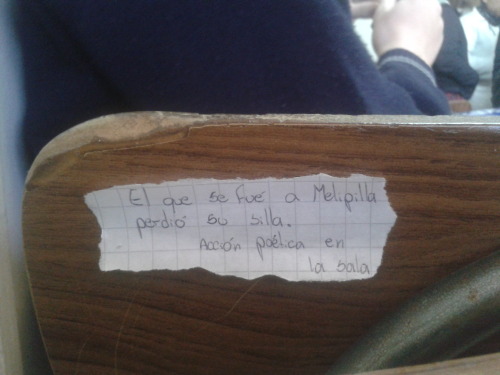 El que se fué a Melipilla
perdió su silla.
Acción poética en
la sala